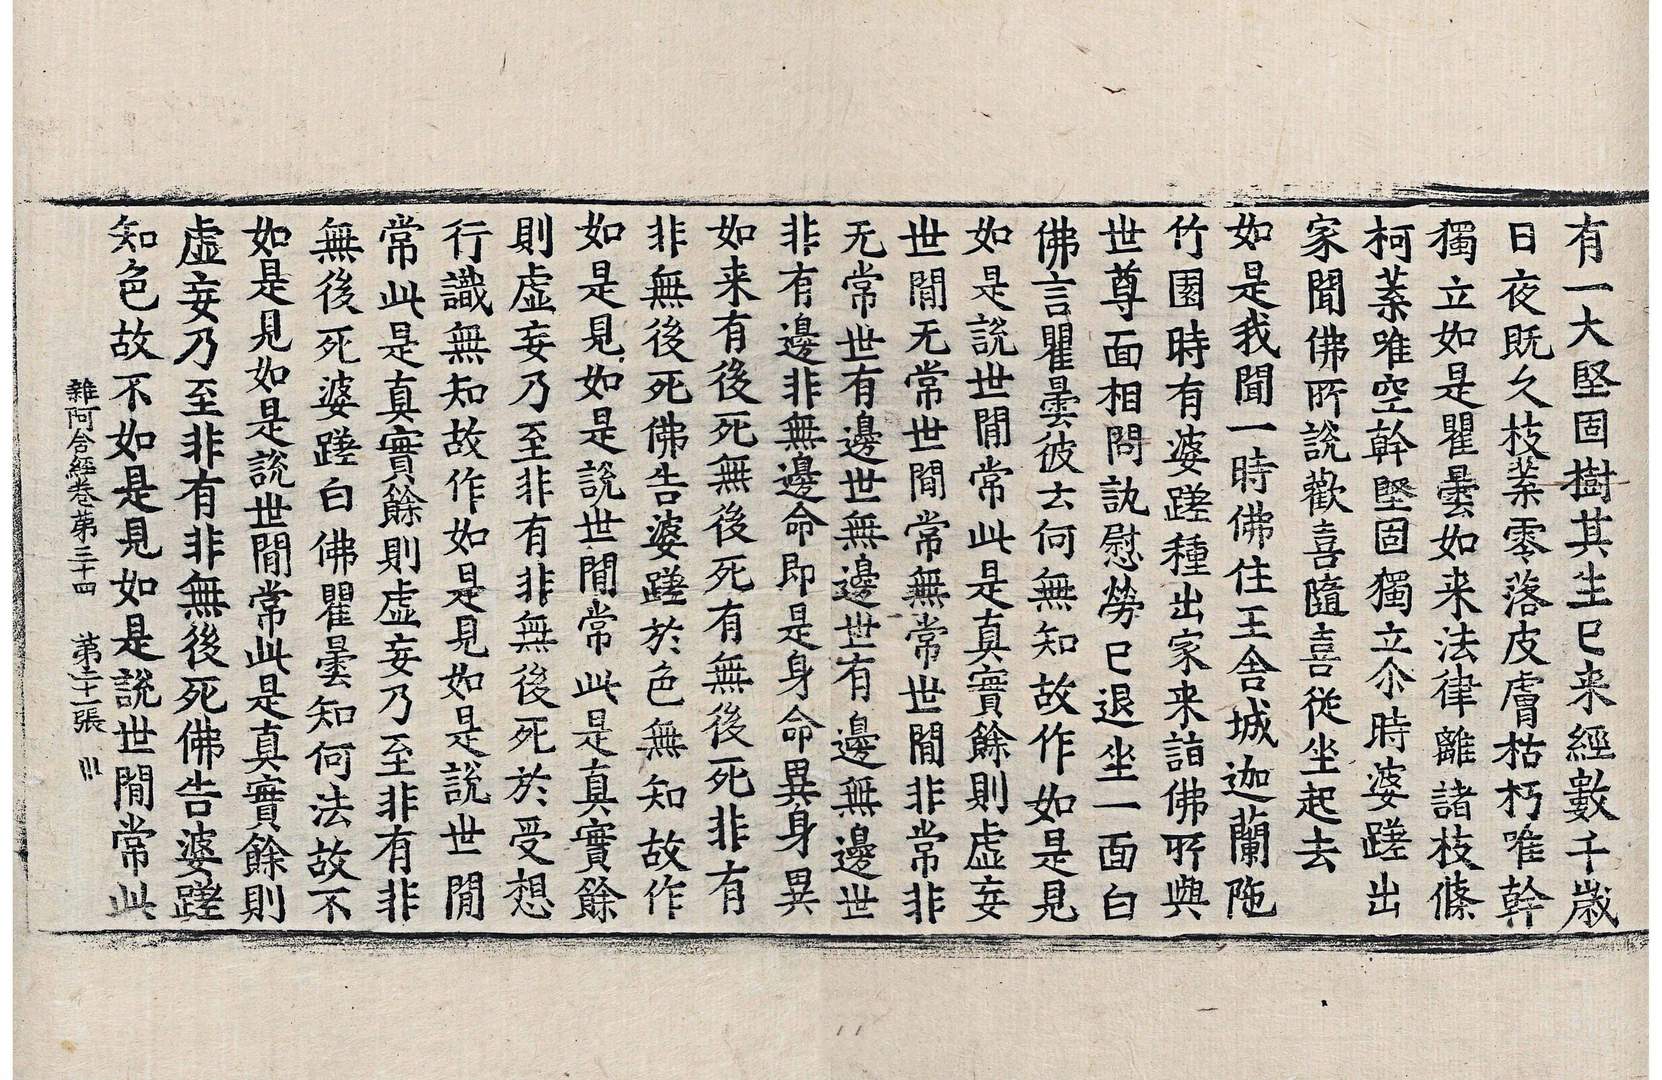 有一大堅固樹其生已来經數千歲
日夜既久枝葉零落皮膚枯朽唯幹
獨立如是瞿曇如来法律離諸枝條
柯葉唯空幹堅固獨立尒時婆蹉出
家聞佛所說歡喜隨喜從坐起去
如是我聞一時佛住王舍城迦蘭陁
竹園時有婆蹉種出家来詣佛所與
世尊面相問訊慰勞已退坐一面白
佛言瞿曇彼云何無知故作如是見
如是說世間常此是真實餘則虛妄
世間无常世間常無常世間非常非
无常世有邊世無邊世有邊無邊世
非有邊非無邊命即是身命異身異
如来有後死無後死有無後死非有
非無後死佛告婆蹉於色無知故作
如是見如是說世間常此是真實餘
則虛妄乃至非有非無後死於受想
行識無知故作如是見如是說世間
常此是真實餘則虛妄乃至非有非
無後死婆蹉白佛瞿曇知何法故不
如是見如是說世間常此是真實餘則
虛妄乃至非有非無後死佛告婆蹉
知色故不如是見如是說世間常此
雜阿含經卷第三十四 第二十一張